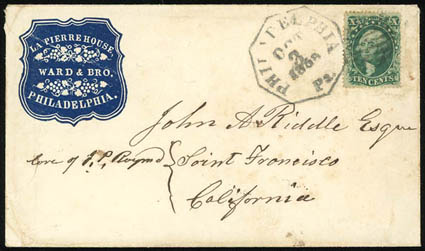 LA PIERRE HOUSE
WARD & BRO.
PHILADELPHIA.
PHILADELPHIA
OCT
3
Pa.
X X
TEN CENTS
John A Riddle Esqr
Care of
Saint Francisco
California